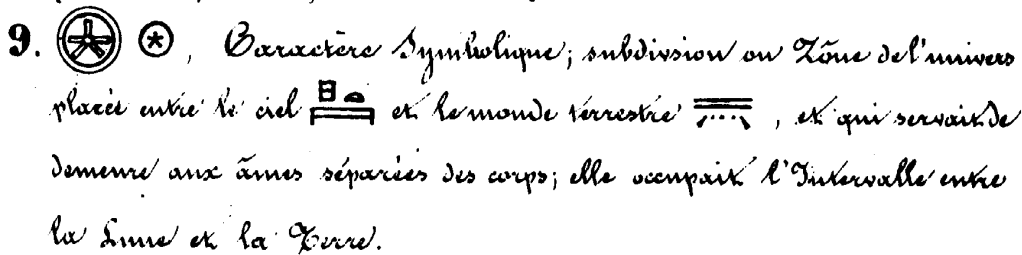 9. 𓇽 𓇽, Caractère Symbolique; subdivision ou Zône de l'univers
placée entre le ciel 𓊪𓏏𓇯 et le monde terrestre 𓇾, et qui servait de
demeure aux âmes séparées des corps; elle occupait l'Intervalle entre
la Lune et la Terre.